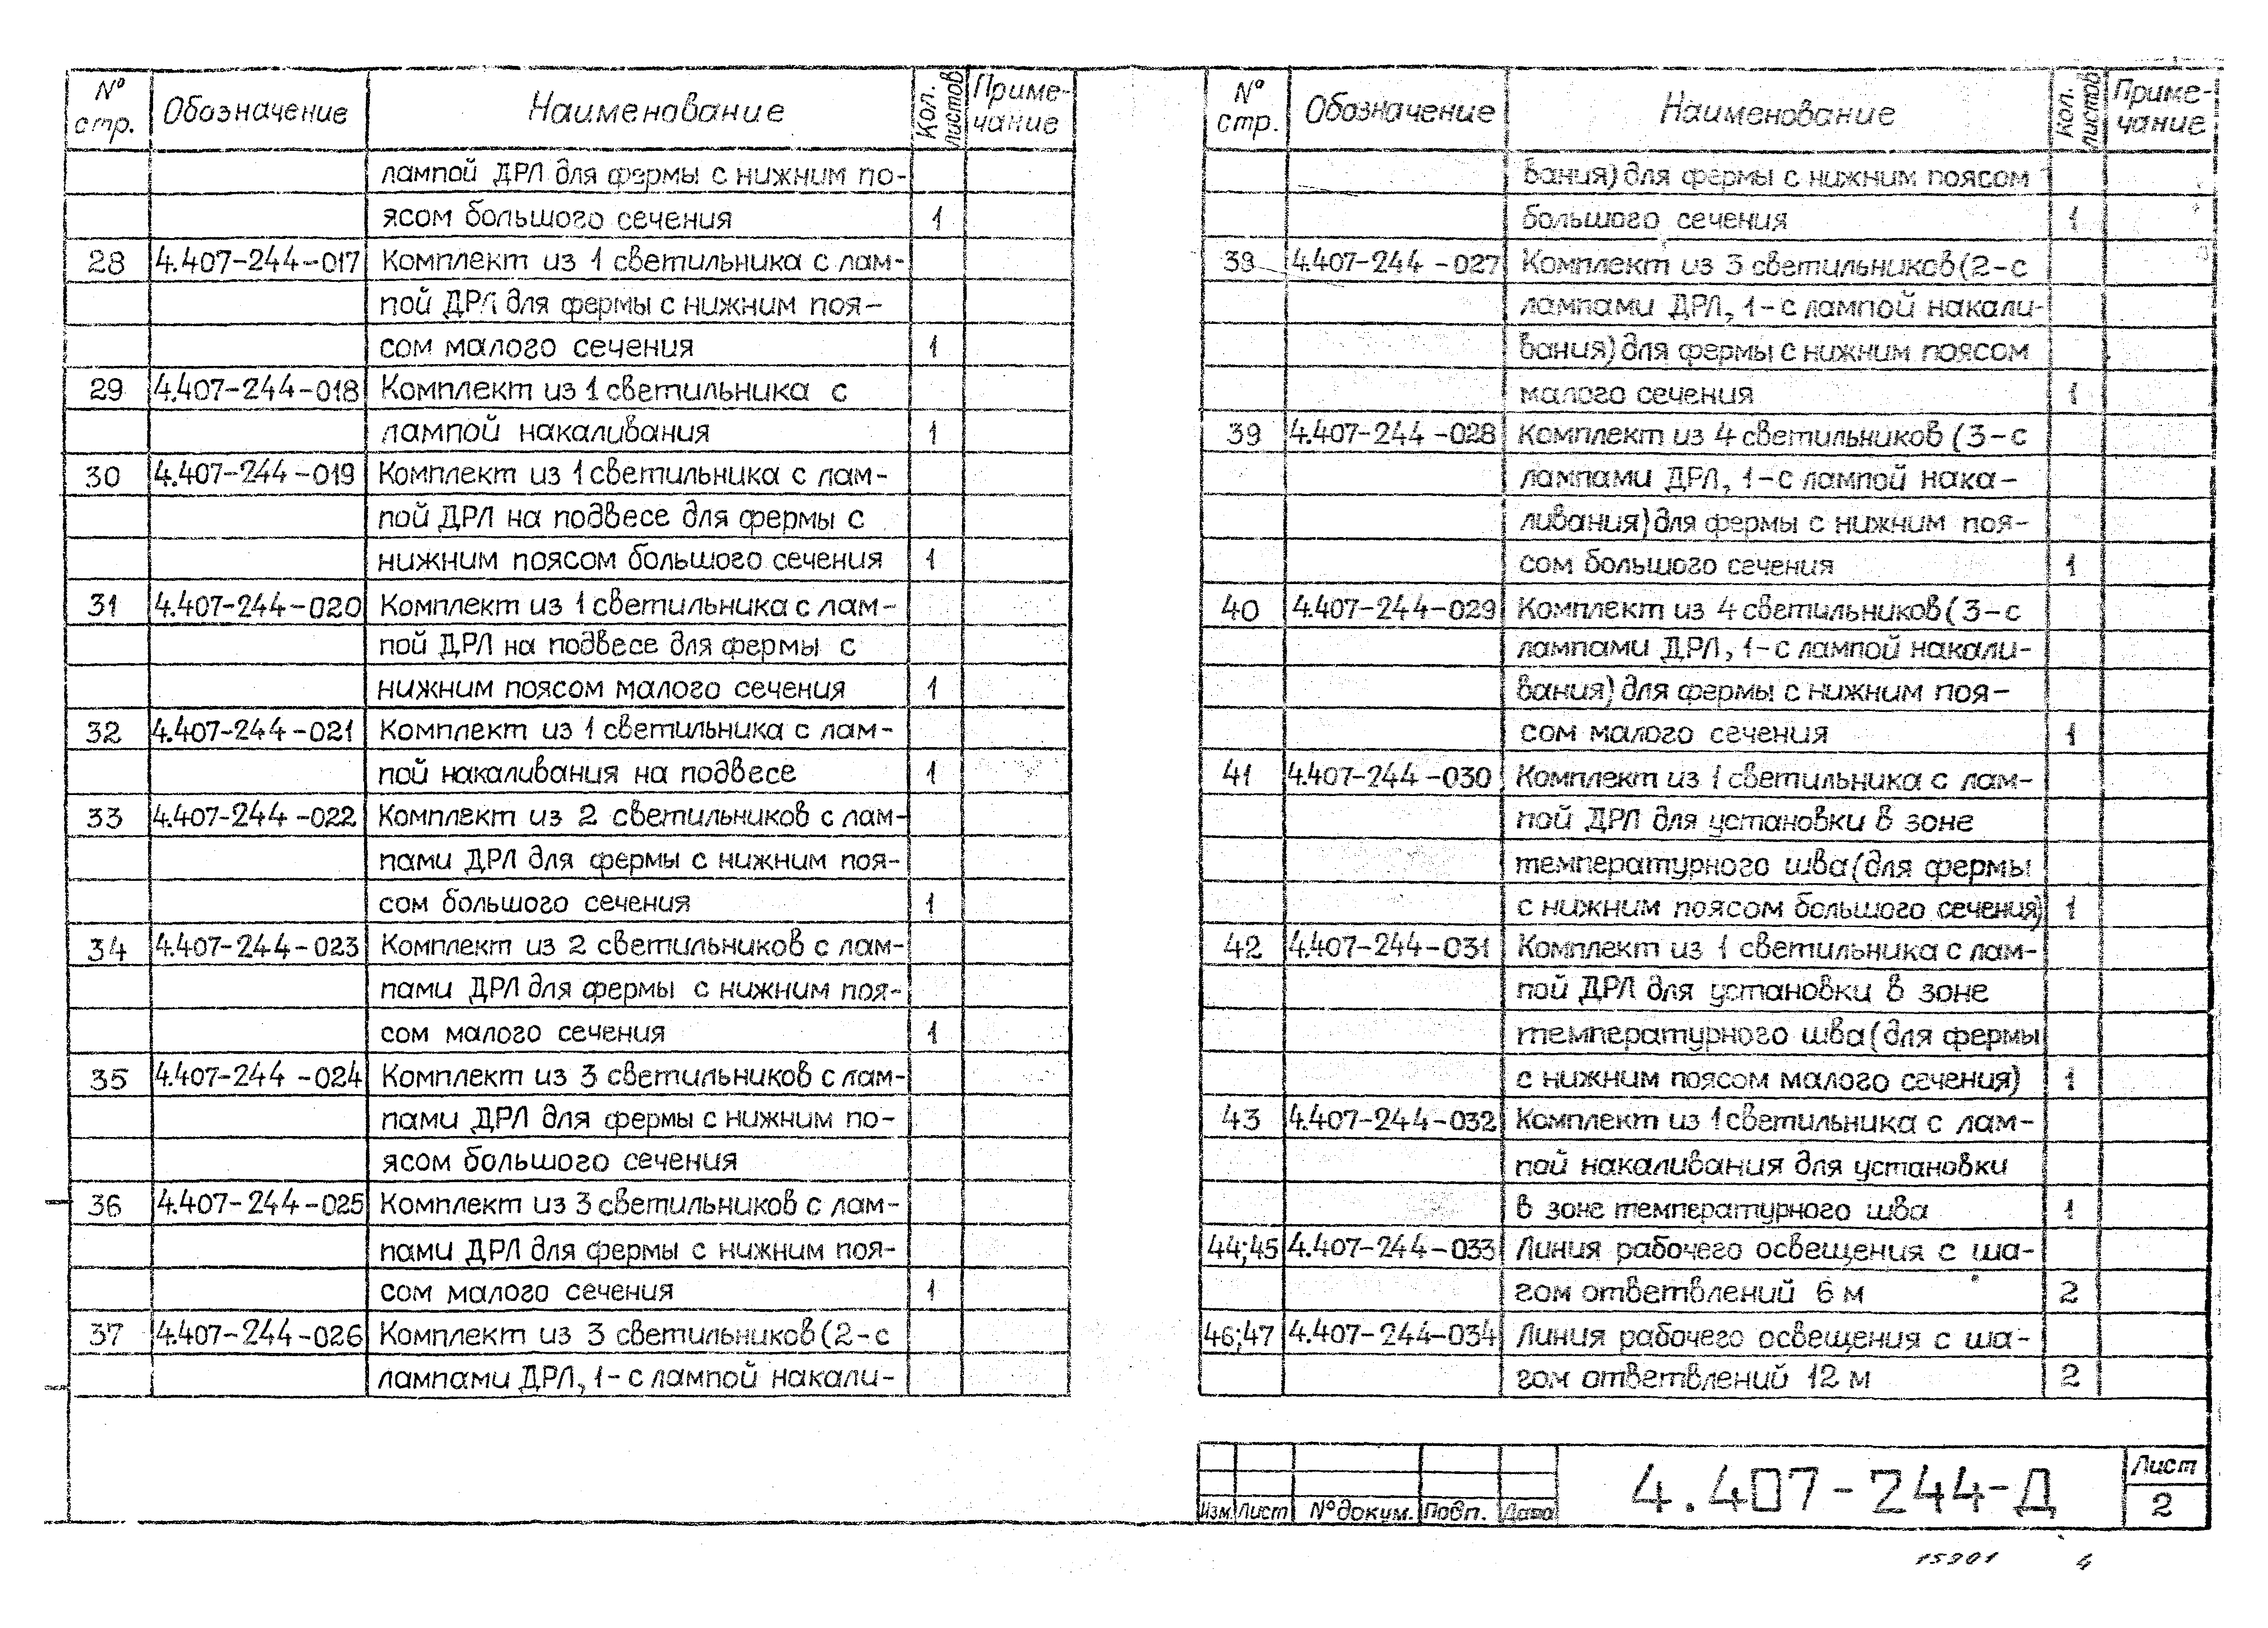 № стр. Обозначение Наименование Кол. листов Приме-чание
лампой ДРЛ для фермы с нижним по-
ясом большого сечения 1
28 4.407-244-017 Комплект из 1 светильника с лам-
пой ДРЛ для фермы с нижним поя-
сом малого сечения 1
29 4.407-244-018 Комплект из 1 светильника с
лампой накаливания 1
30 4.407-244-019 Комплект из 1 светильника с лам-
пой ДРЛ на подвесе для фермы с
нижним поясом большого сечения 1
31 4.407-244-020 Комплект из 1 светильника с лам-
пой ДРЛ на подвесе для фермы с
нижним поясом малого сечения 1
32 4.407-244-021 Комплект из 1 светильника с лам-
пой накаливания на подвесе 1
33 4.407-244-022 Комплект из 2 светильников с лам-
пами ДРЛ для фермы с нижним поя-
сом большого сечения 1
34 4.407-244-023 Комплект из 2 светильников с лам-
пами ДРЛ для фермы с нижним поя-
сом малого сечения 1
35 4.407-244-024 Комплект из 3 светильников с лам-
пами ДРЛ для фермы с нижним по-
ясом большого сечения
36 4.407-244-025 Комплект из 3 светильников с лам-
пами ДРЛ для фермы с нижним поя-
сом малого сечения 1
37 4.407-244-026 Комплект из 3 светильников (2-с
лампами ДРЛ, 1-с лампой накали-
№ стр. Обозначение Наименование Кол. листов Приме-чание
вания) для фермы с нижним поясом
большого сечения 1
39 4.407-244-027 Комплект из 3 светильников (2-с
лампами ДРЛ, 1-с лампой накали-
вания) для фермы с нижним поясом
малого сечения 1
39 4.407-244-028 Комплект из 4 светильников (3-с
лампами ДРЛ, 1-с лампой нака-
ливания) для фермы с нижним поя-
сом большого сечения 1
40 4.407-244-029 Комплект из 4 светильников (3-с
лампами ДРЛ, 1-с лампой накали-
вания) для фермы с нижним поя-
сом малого сечения 1
41 4.407-244-030 Комплект из 1 светильника с лам-
пой ДРЛ для установки в зоне
температурного шва (для фермы
с нижним поясом большого сечения) 1
42 4.407-244-031 Комплект из 1 светильника с лам-
пой ДРЛ для установки в зоне
температурного шва (для фермы
с нижним поясом малого сечения) 1
43 4.407-244-032 Комплект из 1 светильника с лам-
пой накаливания для установки
в зоне температурного шва 1
44;45 4.407-244-033 Линия рабочего освещения с ша-
гом ответвлений 6 м 2
46;47 4.407-244-034 Линия рабочего освещения с ша-
гом ответвлений 12 м 2
Изм. Лист № докум. Подп. Дата
4.407-244-Д
Лист
2
15901 4